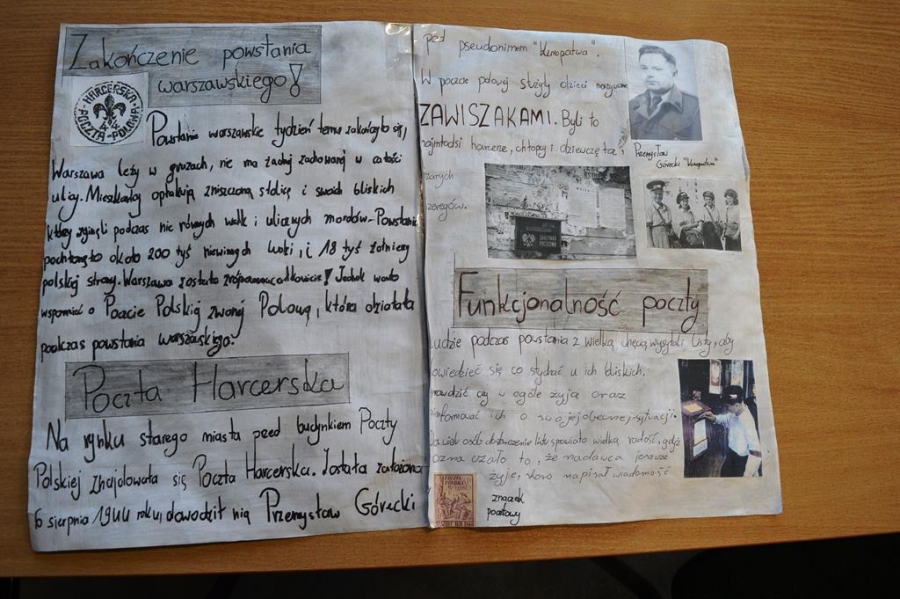 Zakończenie powstania
warszawskiego!
HARCERSKA
POCZTA POLOWA
44
Powstanie warszawskie tydzień temu zakończyło się,
Warszawa leży w gruzach, nie ma żadnej zachowanej w całości
ulicy. Mieszkańcy opłakują zniszczoną stolicę i swoich bliskich
którzy zginęli podczas nie równych walk i ulicznych mordów. Powstanie
pochłonęło około 200 tyś niewinnych ludzi, i 18 tyś żołnierzy
polskiej strony. Warszawa została zrównana całkowicie! Jednak warto
wspomnieć o Poczcie Polskiej zwanej Polową, która działała
podczas powstania warszawskiego.
Poczta Harcerska
Na rynku starego miasta przed budynkiem Poczty
Polskiej znajdowała się Poczta Harcerska. Została założona
6 sierpnia 1944 roku, dowodził nią Przemysław Górecki
pod pseudonimem "Kuropatwa".
W poczcie polowej służyły dzieci nazywane
ZAWISZAKAMI. Byli to
najmłodsi harcerze, chłopcy i dziewczęta z
szarych
szeregów.
Przemysław
Górecki "Kuropatwa"
Funkcjonalność poczty
Ludzie podczas powstania z wielką chęcią wysyłali listy, aby
dowiedzieć się co słychać u ich bliskich,
sprawdzić czy w ogóle żyją oraz
informować ich o swojej obecnej sytuacji.
Dla wielu osób dostarczenie listu sprawiało wielką radość, gdyż
oznaczało to, że nadawca jeszcze
żyje, skoro napisał wiadomość
znaczek
pocztowy